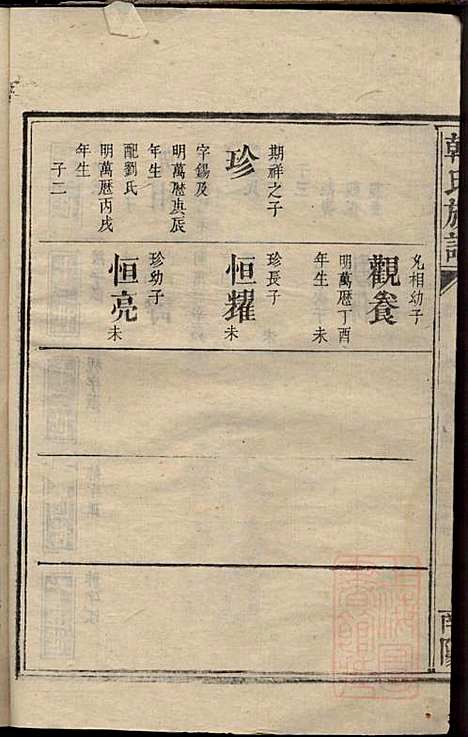 韓氏族譜
南陽
期祥之子
珍
字錫及
明萬曆庚辰
年生
配劉氏
明萬曆丙戌
年生
子二
允相幼子
觀養
明萬曆丁酉
年生 未
珍長子
恒耀 未
珍幼子
恒亮 未